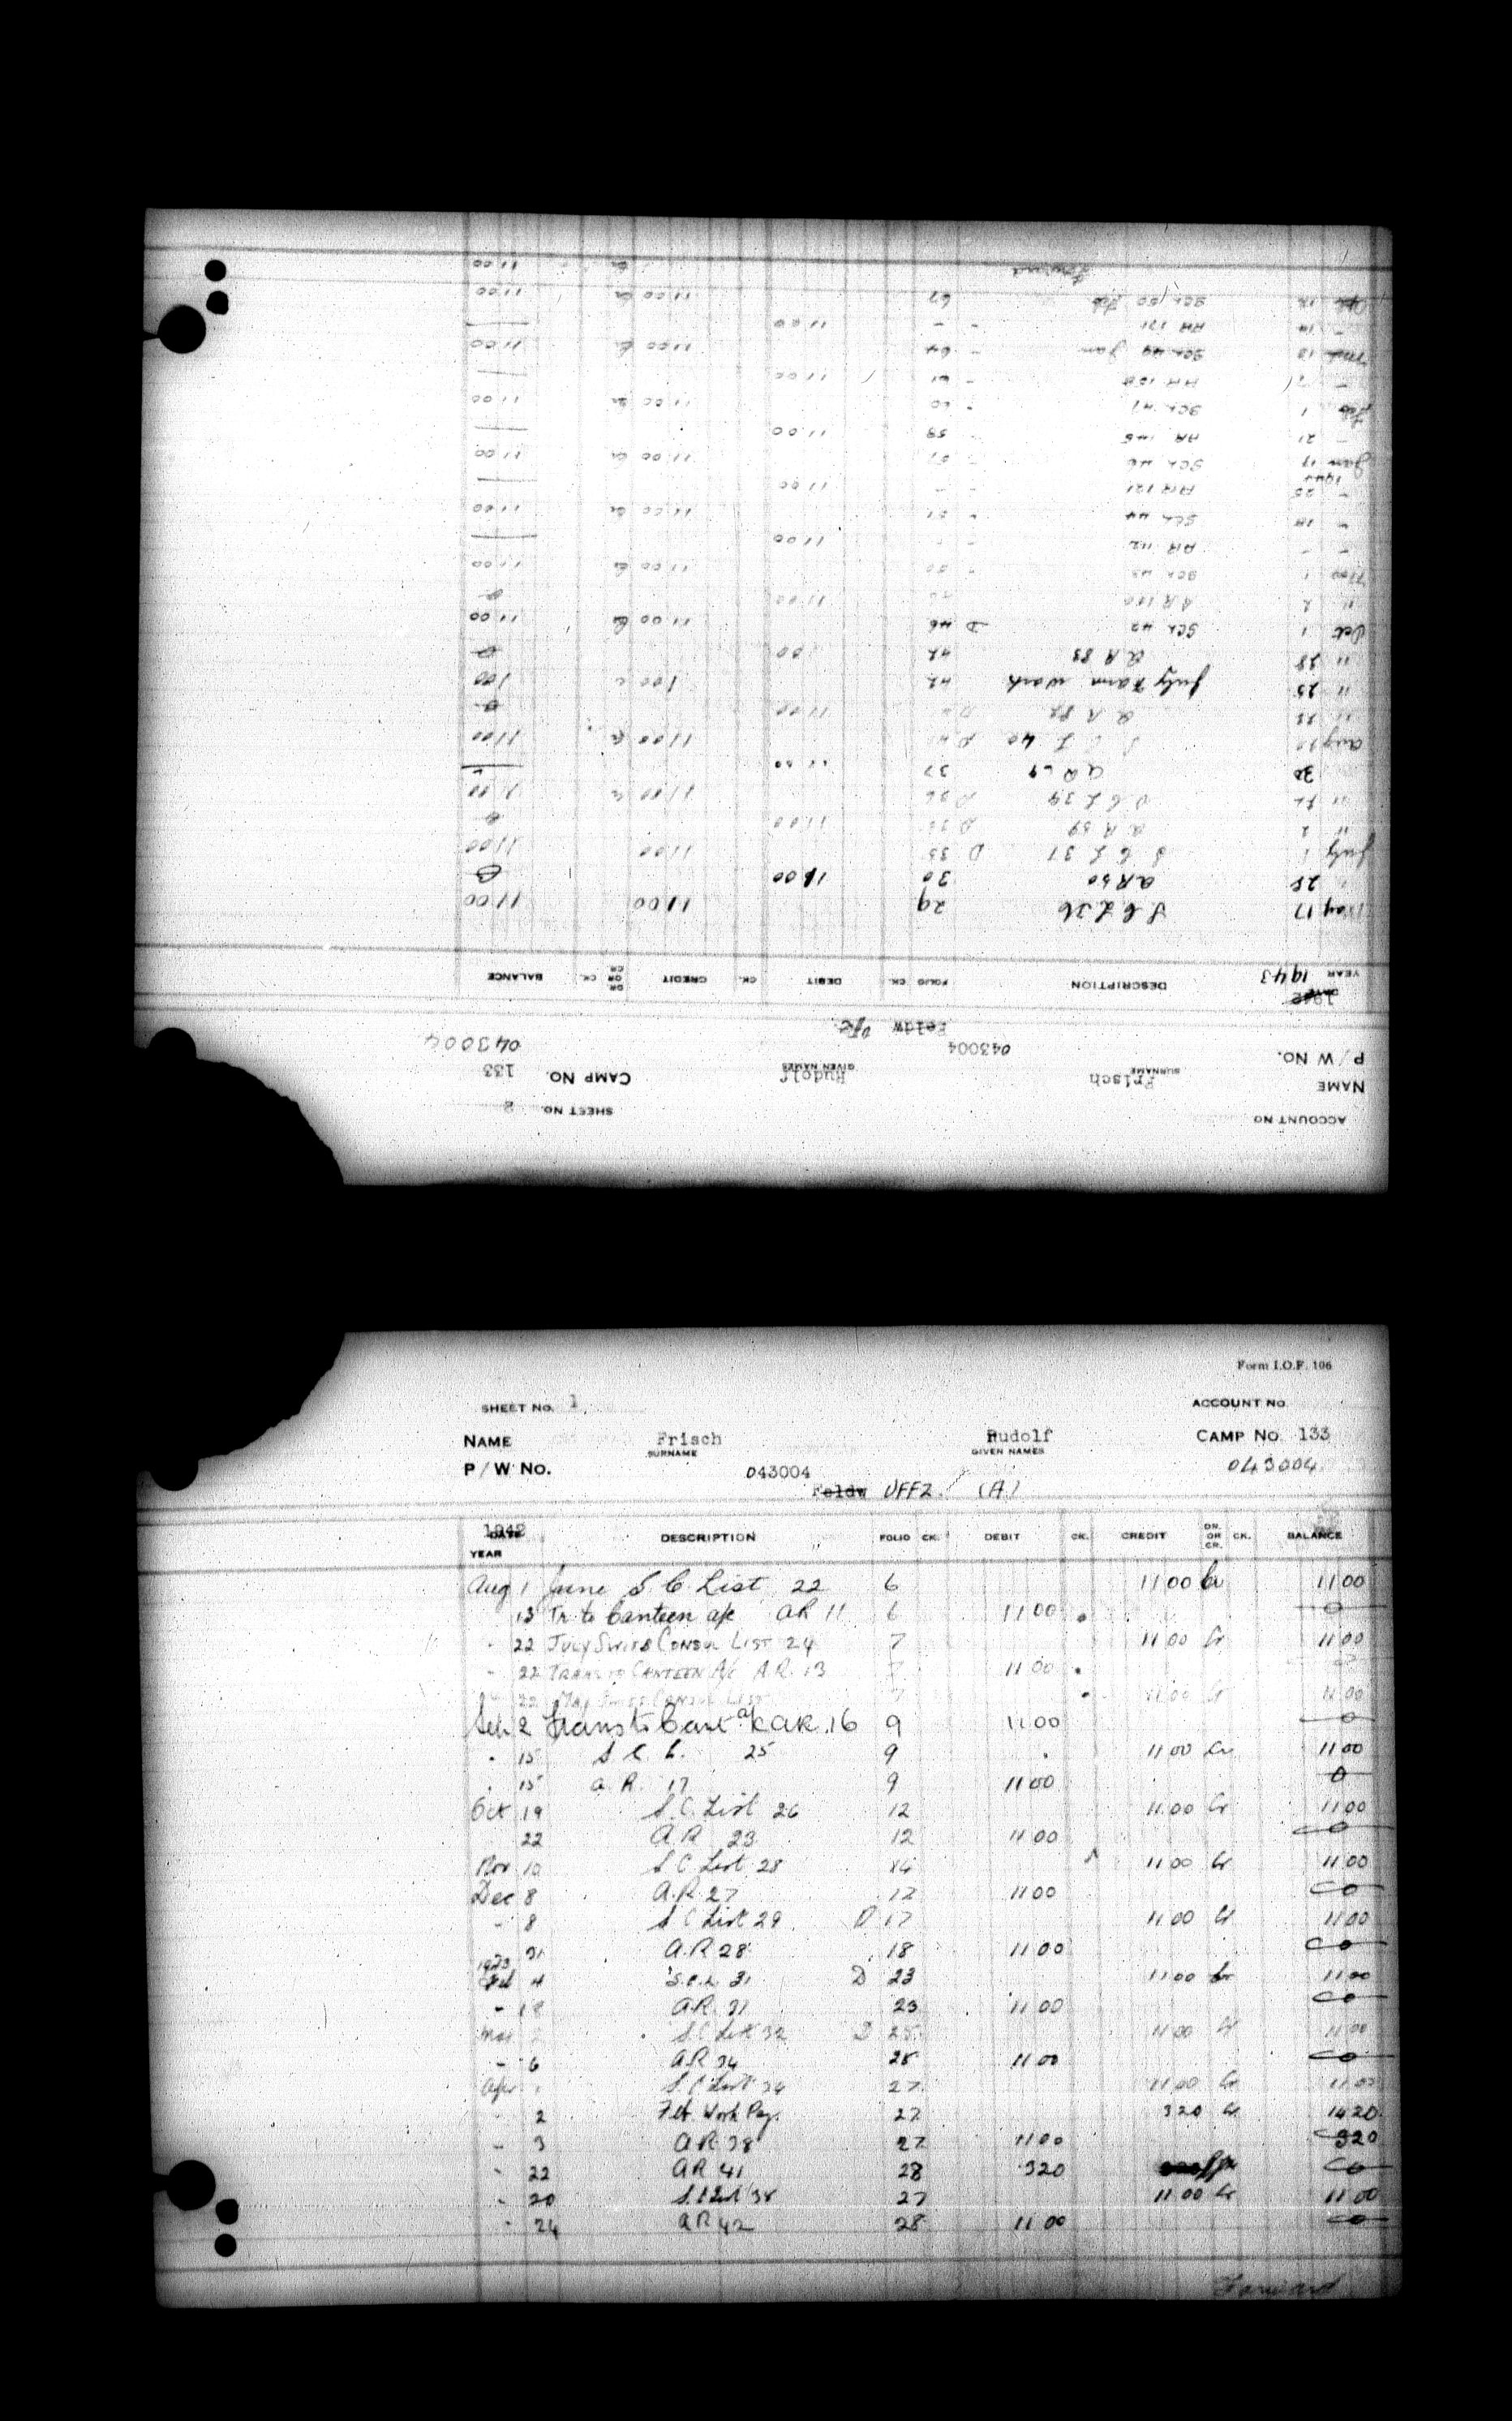 ACCOUNT NO
SHEET NO. 2
NAME Frisch Rudolf CAMP NO. 133
SURNAME GIVEN NAMES
P/W NO. 043004 043004
Feldw
1942
DATE
YEAR 1943 DESCRIPTION FOLIO CK. DEBIT CK. CREDIT DR. OR CR. CK. BALANCE
May 17 S C L 36 29 11 00 11 00
" 28 AR 50 30 11 00 0
July 1 S C L 37 D 35 11 00 11 00
" 2 AR 59 D 11 00 0
" S C L 39 D 36 11 00 Cr 11 00
30 AR 69 37
Aug 10 40 D 11 00 Cr 11 00
AR 82 11 00 0
" 25 July Farm work 42 1 00 1 00
" 28 AR 83 42 1 00 0
Oct 1 SCL 42 D 46 11 00 Cr 11 00
" 2 AR 100 11 00 0
Nov 1 SCL 43 - 50 11 00 Cr 11 00
- - AR 112 - 11 00
- 18 SCL 44 - 51 11 00 Cr 11 00
- 25 AR 121 - - 11 00
1944
Jan 17 SCL 46 - 57 11 00 Cr 11 00
- 21 AR 145 - 58 11 00
Feb 1 SCL 47 - 60 11 00 Cr 11 00
AR 158 - 61 11 00
Mch 10 SCL 49 Jan - 64 11 00 Cr 11 00
- 14 AR 171 - - 11 00
Apl 12 SCL 50 Feb 67 11 00 Cr 11 00
Forward Cr 11 00
Form I.O.F. 106
SHEET NO. 1 ACCOUNT NO.
NAME Frisch Rudolf CAMP NO. 133
SURNAME GIVEN NAMES
P/W NO. 043004 043004
Feldw UFFZ. (A)
1942
DATE
YEAR DESCRIPTION FOLIO CK. DEBIT CK. CREDIT DR. OR CR. CK. BALANCE
Aug 1 June S. C. List 22 6 11 00 Cr 11 00
13 Tr. to Canteen a/c AR 11 6 11 00 0
" 22 JULY SWISS CONSUL LIST 24 7 11 00 Cr 11 00
" 22 TRANS TO CANTEEN A/C A.R. 13 7 11 00
22 MAY SWISS CONSUL LIST 7 11 00 Cr 11 00
Sep. 2 Trans to Cant a/c AR. 16 9 11 00 0
" 15 S C L. 25 9 11 00 Cr 11 00
" 15 A. R. 17 9 11 00 0
Oct 19 S. C. List 26 12 11 00 Cr 11 00
22 A R 23 12 11 00 0
Nov 10 S C List 28 14 11 00 Cr 11 00
Dec 8 A. R 27 17 11 00 0
- 8 S C List 29 D 17 11 00 Cr 11 00
31 A. R 28 18 11 00 0
1943
Feb 4 S.C.L 31 D 23 11 00 Cr 11 00
- 18 A.R. 31 23 11 00 0
Mar 2 S.C List 32 D 25 11 00 Cr 11 00
- 6 A R 34 25 11 00 0
Apr 1 S. C List 34 27 11 00 Cr 11 00
2 Feb. Work Pay. 27 3 20 Cr 14 20
- 3 A R 38 27 11 00 3 20
- 22 A R 41 28 3 20 0
- 20 S. C List 35 27 11 00 Cr 11 00
" 24 A R 42 28 11 00 0
Forward